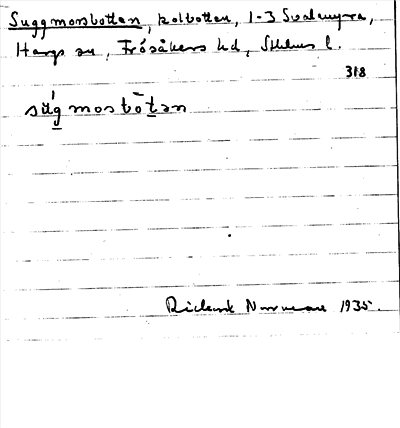 Suggmorsbotten, kolbotten, 1-3 Svalmyra,
Hargs sn, Frösåkers hd, Sthlms l.
318
sŭ́g mosbōtən
Rickard Norrman 1935.